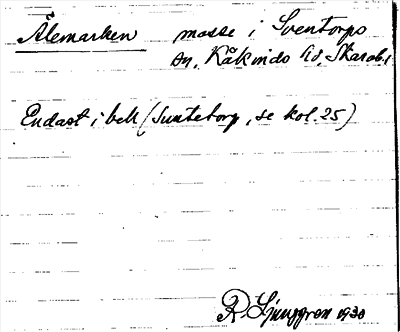 Ålemarken mosse i Sventorps
sn, Kåkinds hd, Skarab. l
Endast i bek (Suntetorp, se kol. 25)
R Ljunggren 1930